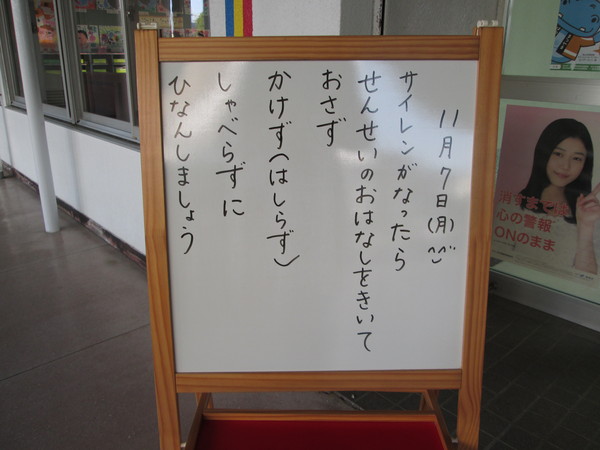 11月7日(月)^^
サイレンがなったら
せんせいのおはなしをきいて
おさず
かけず(はしらず)
しゃべらずに
ひなんしましょう
消すまでは
心の警報
ONのまま